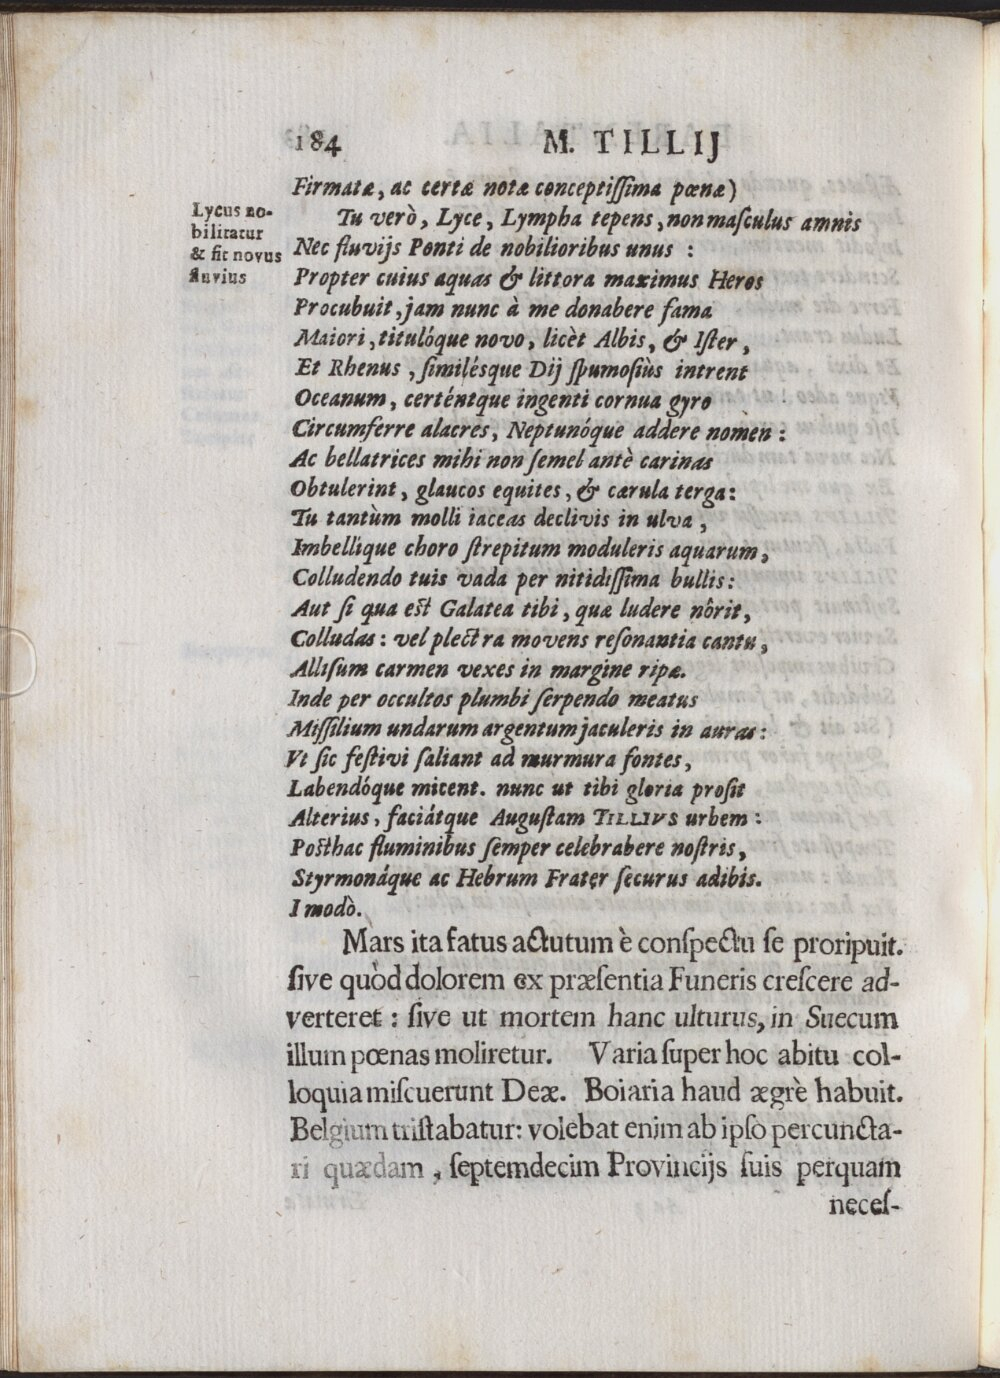 184 M. TILLIJ
Firmatæ, ac certæ notæ conceptissima pœnæ)
Lycus no-
bilitatur
& fit novus
fluvius
Tu verò, Lyce, Lympha tepens, non masculus amnis
Nec fluvijs Ponti de nobilioribus unus :
Propter cuius aquas & littora maximus Heros
Procubuit, jam nunc à me donabere fama
Maiori, titulóque novo, licèt Albis, & Ister,
Et Rhenus, similésque Dij spumosiùs intrent
Oceanum, certéntque ingenti cornua gyro
Circumferre alacres, Neptunóque addere nomen :
Ac bellatrices mihi non semel antè carinas
Obtulerint, glaucos equites, & cærula terga:
Tu tantùm molli iaceas declivis in ulva,
Imbellique choro strepitum moduleris aquarum,
Colludendo tuis vada per nitidissima bullis:
Aut si qua est Galatea tibi, quæ ludere nôrit,
Colludas: vel plectra movens resonantia cantu,
Allisum carmen vexes in margine ripæ.
Inde per occultos plumbi serpendo meatus
Missilium undarum argentum jaculeris in auras:
Vt sic festivi saliant ad murmura fontes,
Labendóque micent. nunc ut tibi gloria prosit
Alterius, faciátque Augustam TILLIVS urbem :
Posthac fluminibus semper celebrabere nostris,
Styrmonáque ac Hebrum Frater securus adibis.
I modò.
Mars ita fatus actutum è conspectu se proripuit.
sive quòd dolorem ex præsentia Funeris crescere ad-
verteret : sive ut mortem hanc ulturus, in Suecum
illum pœnas moliretur. Varia super hoc abitu col-
loquia miscuerunt Deæ. Boiaria haud ægrè habuit.
Belgium tristabatur: volebat enim ab ipso percuncta-
ri quædam, septemdecim Provincijs suis perquam
neces-